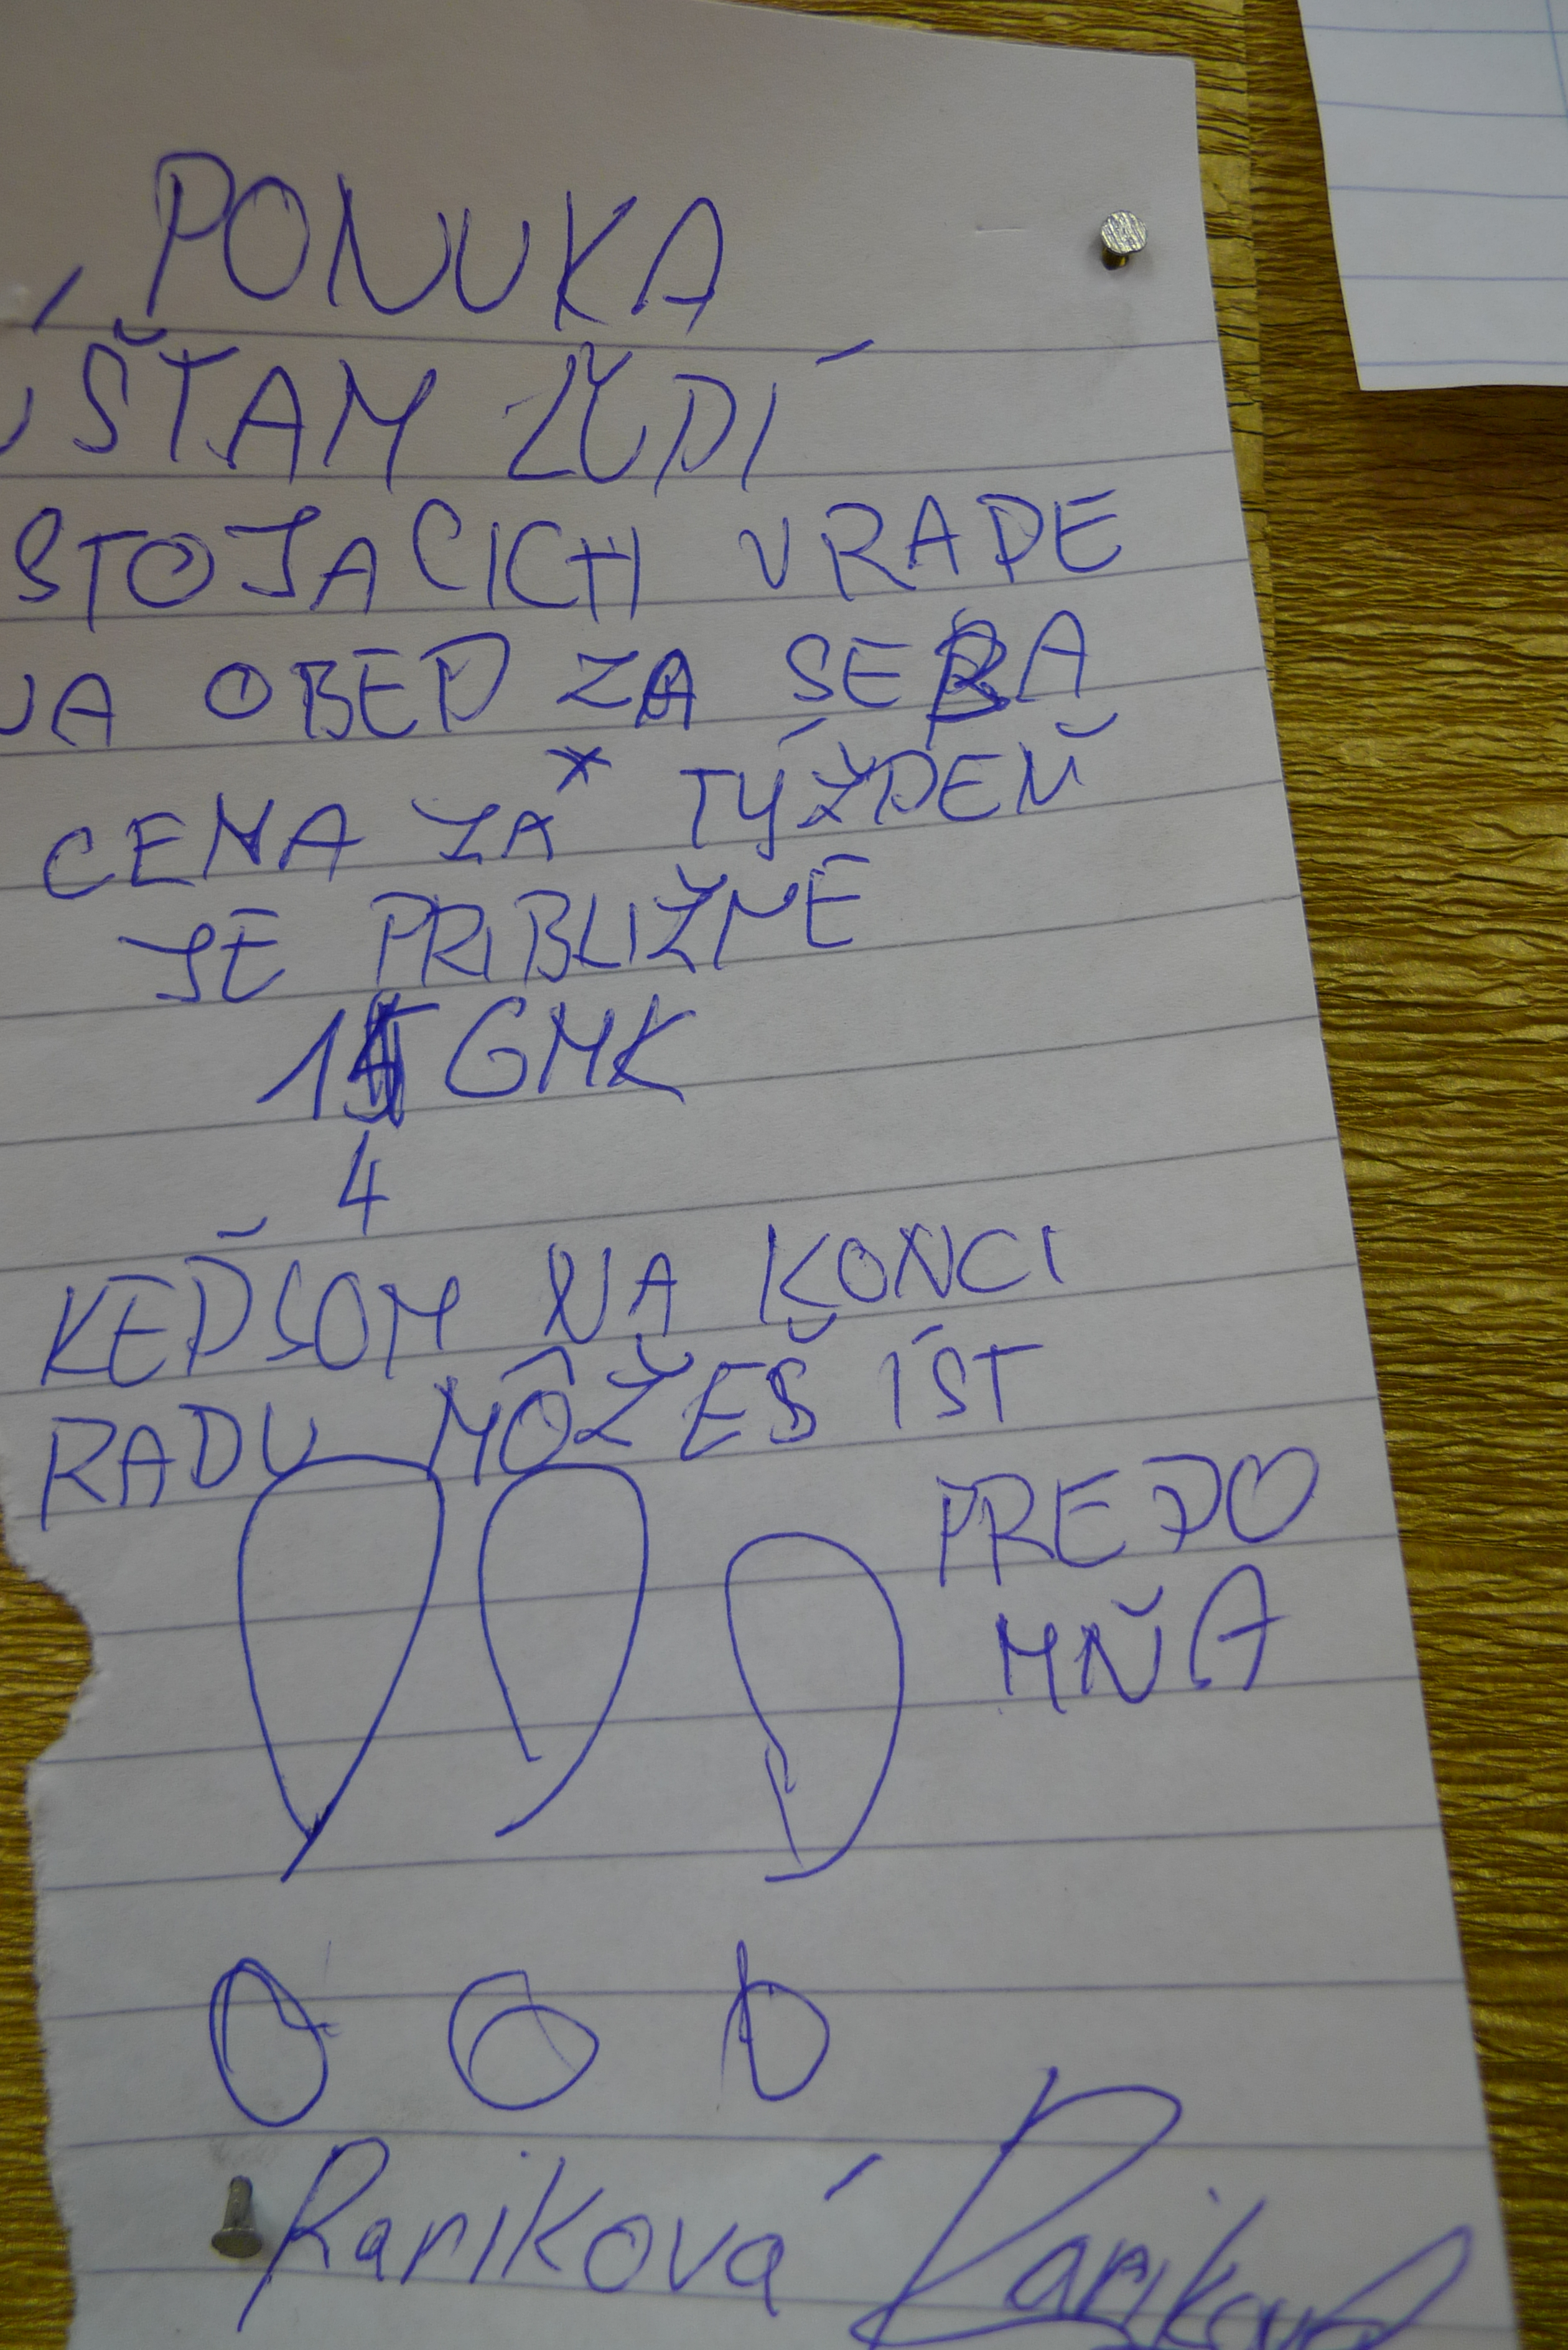 PONUKA
ÚŠŤAM ĽUDÍ
STOJACICH V RADE
NA OBED ZA SEBA
CENA ZA* TÝŽDEŇ
JE PRIBLIŽNE
GMK
4
KEĎ SOM NA KONCI
RADU MÔŽEŠ ÍST
PREDO
MŇA
Raniková Raniková